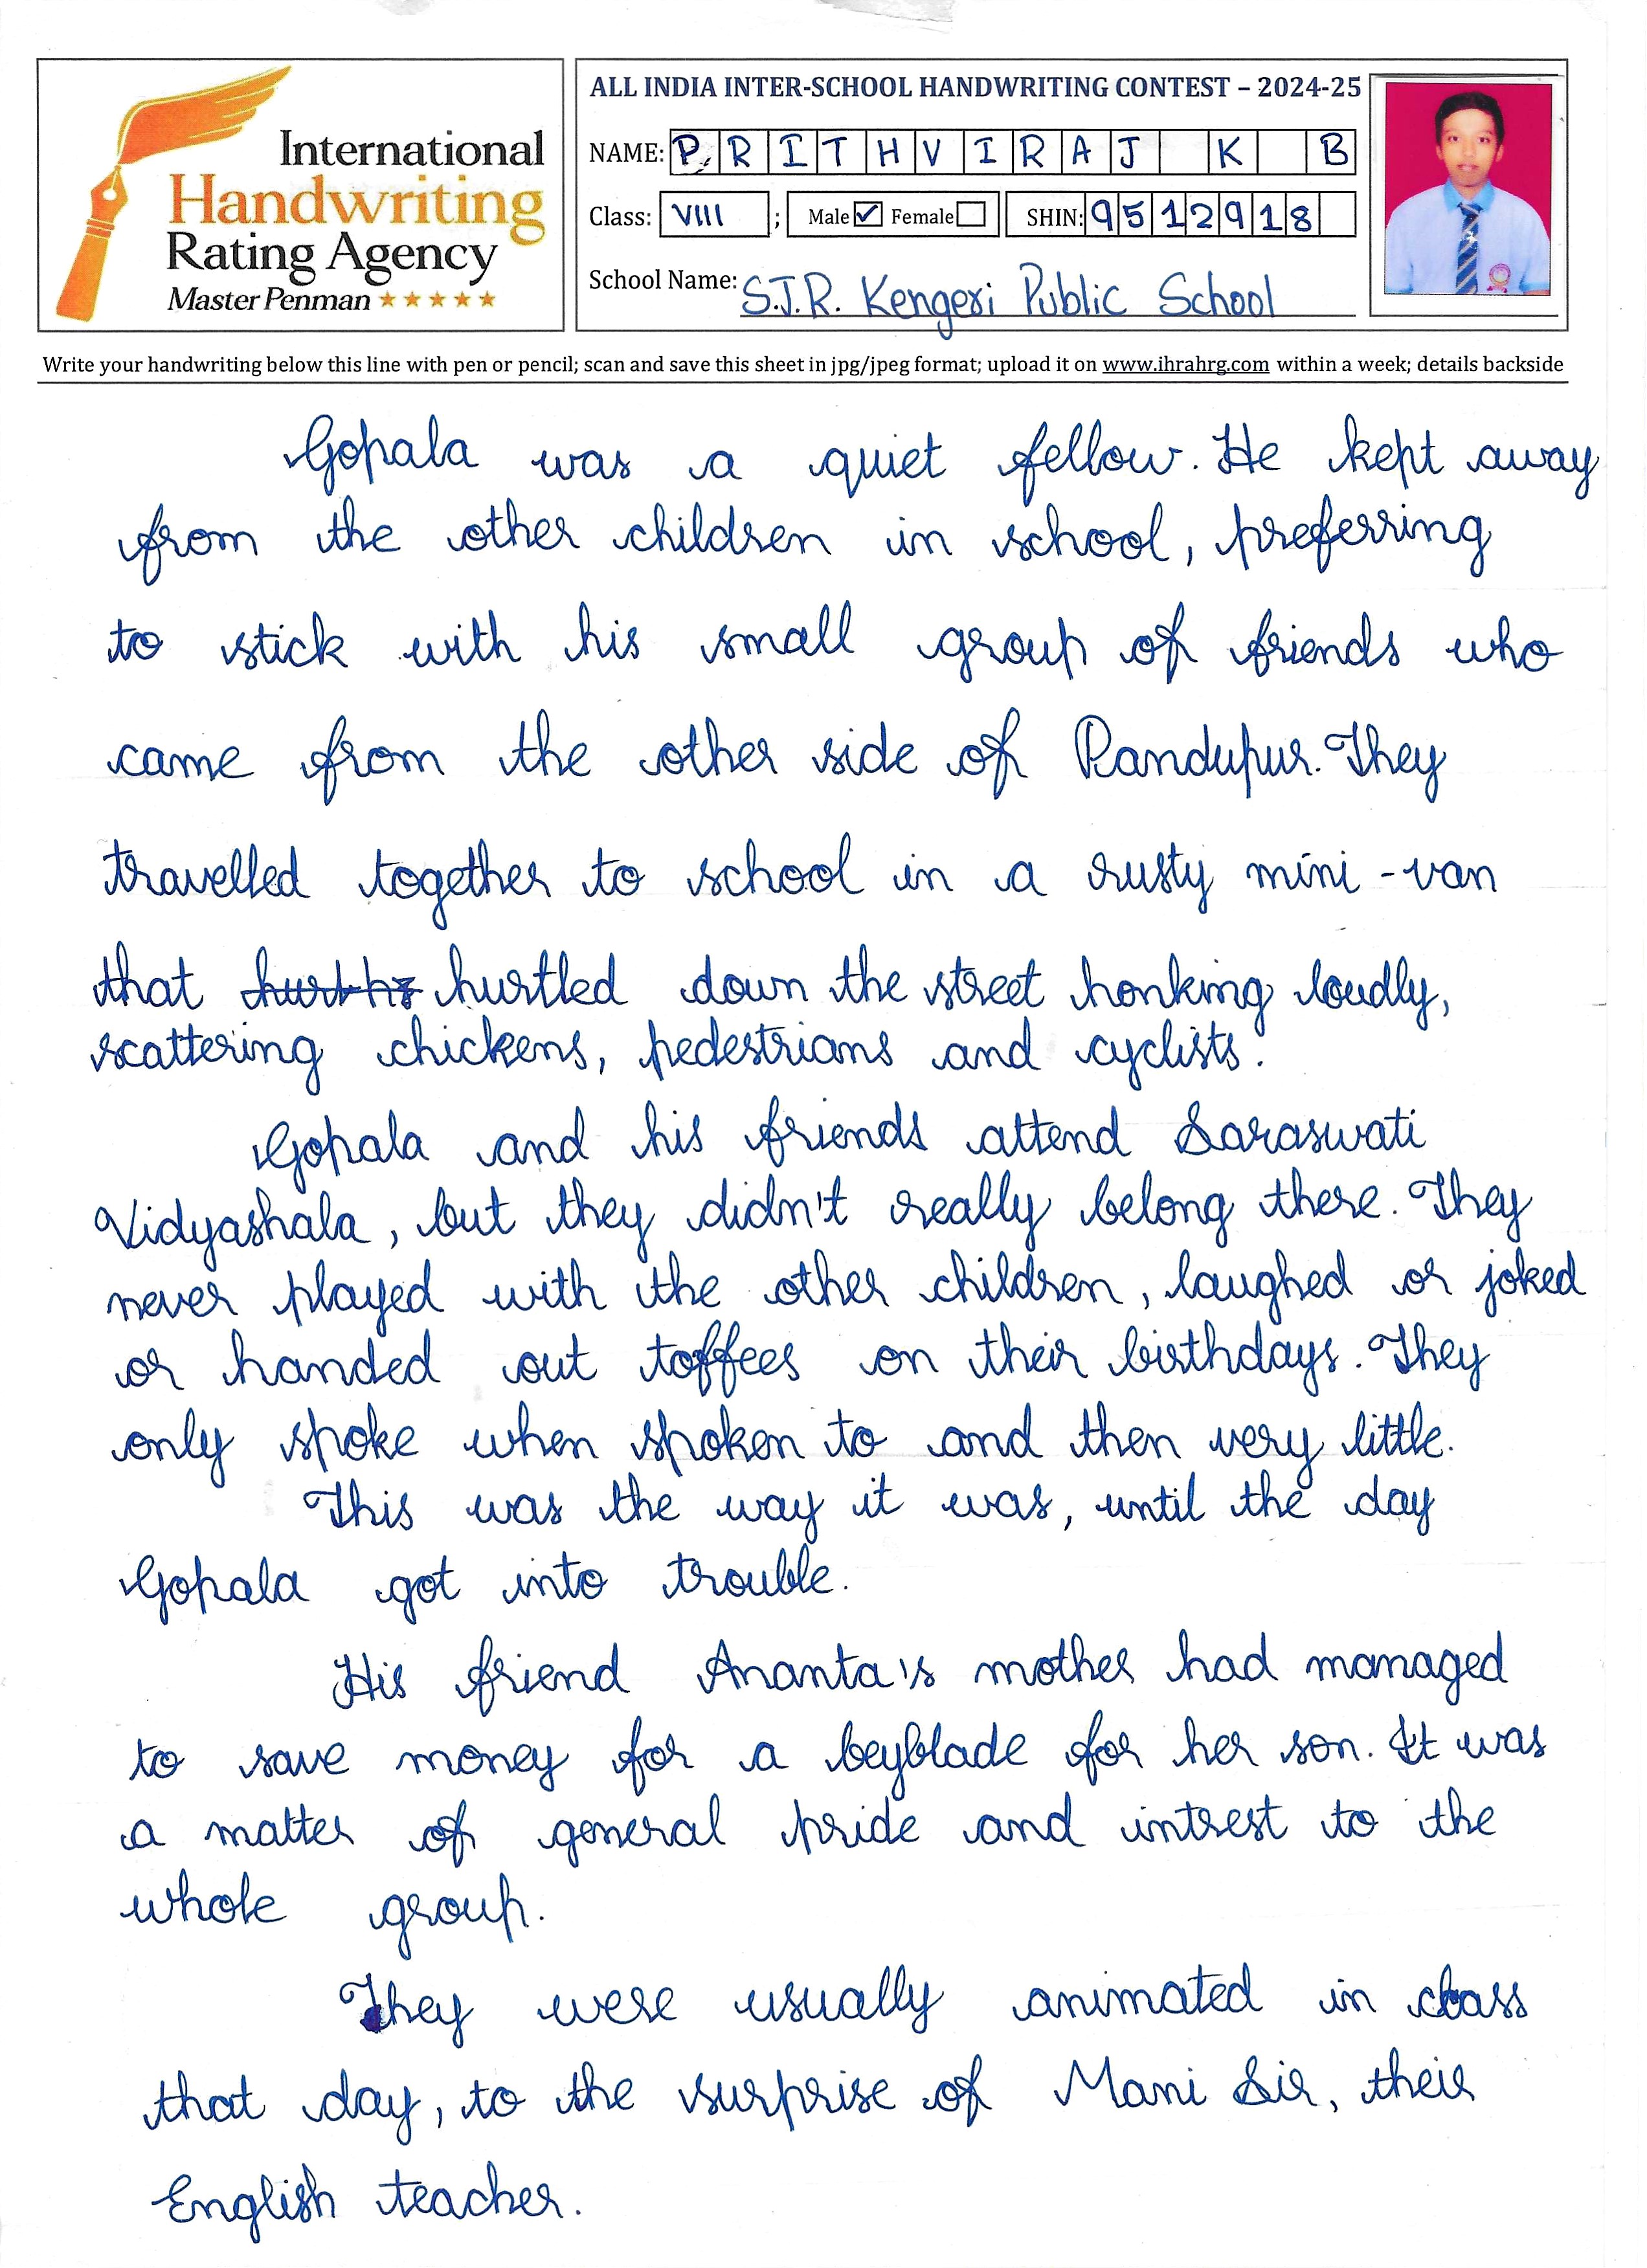 International
Handwriting
Rating Agency
Master Penman
ALL INDIA INTER-SCHOOL HANDWRITING CONTEST – 2024-25
NAME: PRITHVIRAJ K B
Class: VIII ; Male ✓ Female SHIN: 9512918
School Name: S.J.R. Kengeri Public School
Write your handwriting below this line with pen or pencil; scan and save this sheet in jpg/jpeg format; upload it on www.ihrahrg.com within a week; details backside
Gopala was a quiet fellow. He kept away
from the other children in school, preferring
to stick with his small group of friends who
came from the other side of Pandupur. They
travelled together to school in a rusty mini-van
that hurtled down the street honking loudly,
scattering chickens, pedestrians and cyclists.
Gopala and his friends attend Saraswati
Vidyashala, but they didn't really belong there. They
never played with the other children, laughed or joked
or handed out toffees on their birthdays. They
only spoke when spoken to and then very little.
This was the way it was, until the day
Gopala got into trouble.
His friend Ananta's mother had managed
to save money for a beyblade for her son. It was
a matter of general pride and intrest to the
whole group.
They were usually animated in class
that day, to the surprise of Mani Sir, their
English teacher.